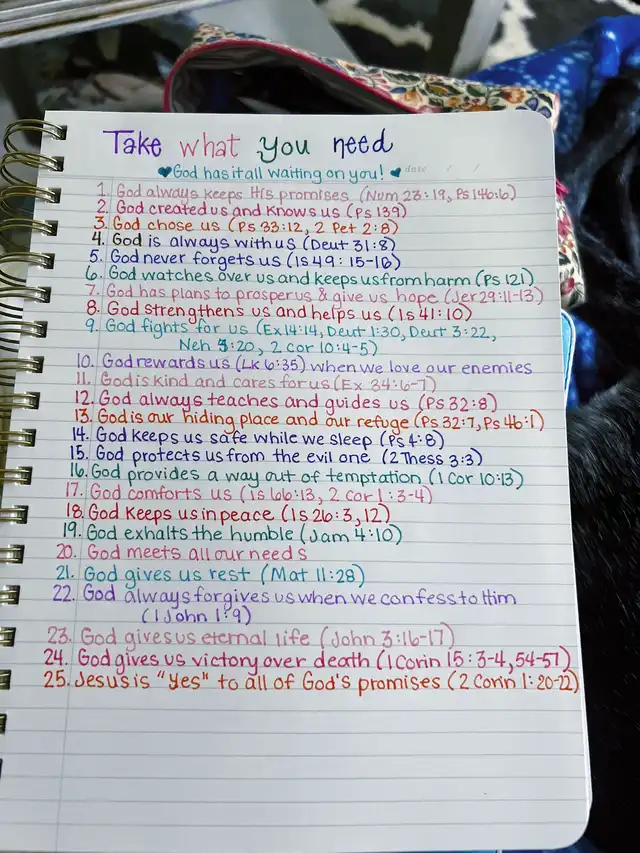 Take what you need
♥God has it all waiting on you!♥ date / /
1. God always keeps His promises (Num 23:19, Ps 146:6)
2. God created us and knows us (Ps 139)
3. God chose us (Ps 33:12, 2 Pet 2:8)
4. God is always with us (Deut 31:8)
5. God never forgets us (Is 49:15-16)
6. God watches over us and keeps us from harm (Ps 121)
7. God has plans to prosper us & give us hope (Jer 29:11-13)
8. God strengthens us and helps us (Is 41:10)
9. God fights for us (Ex 14:14, Deut 1:30, Deut 3:22,
Neh 3:20, 2 Cor 10:4-5)
10. God rewards us (Lk 6:35) when we love our enemies
11. God is kind and cares for us (Ex 34:6-7)
12. God always teaches and guides us (Ps 32:8)
13. God is our hiding place and our refuge (Ps 32:7, Ps 46:1)
14. God keeps us safe while we sleep (Ps 4:8)
15. God protects us from the evil one (2 Thess 3:3)
16. God provides a way out of temptation (1 Cor 10:13)
17. God comforts us (Is 66:13, 2 Cor 1:3-4)
18. God keeps us in peace (Is 26:3, 12)
19. God exhalts the humble (Jam 4:10)
20. God meets all our needs
21. God gives us rest (Mat 11:28)
22. God always forgives us when we confess to Him
(1 John 1:9)
23. God gives us eternal life (John 3:16-17)
24. God gives us victory over death (1 Corin 15:3-4, 54-57)
25. Jesus is "Yes" to all of God's promises (2 Corin 1:20-22)